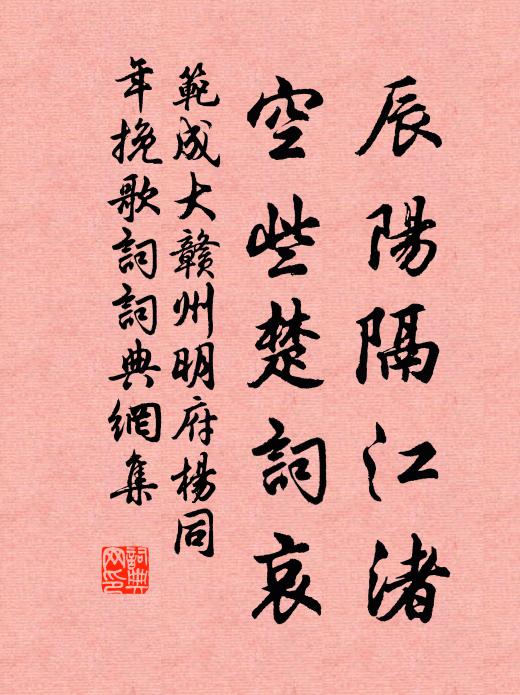 辰陽隔江渚
空些楚詞哀
範成大贛州明府楊同
年挽歌詞詞典網集
詞典
网印